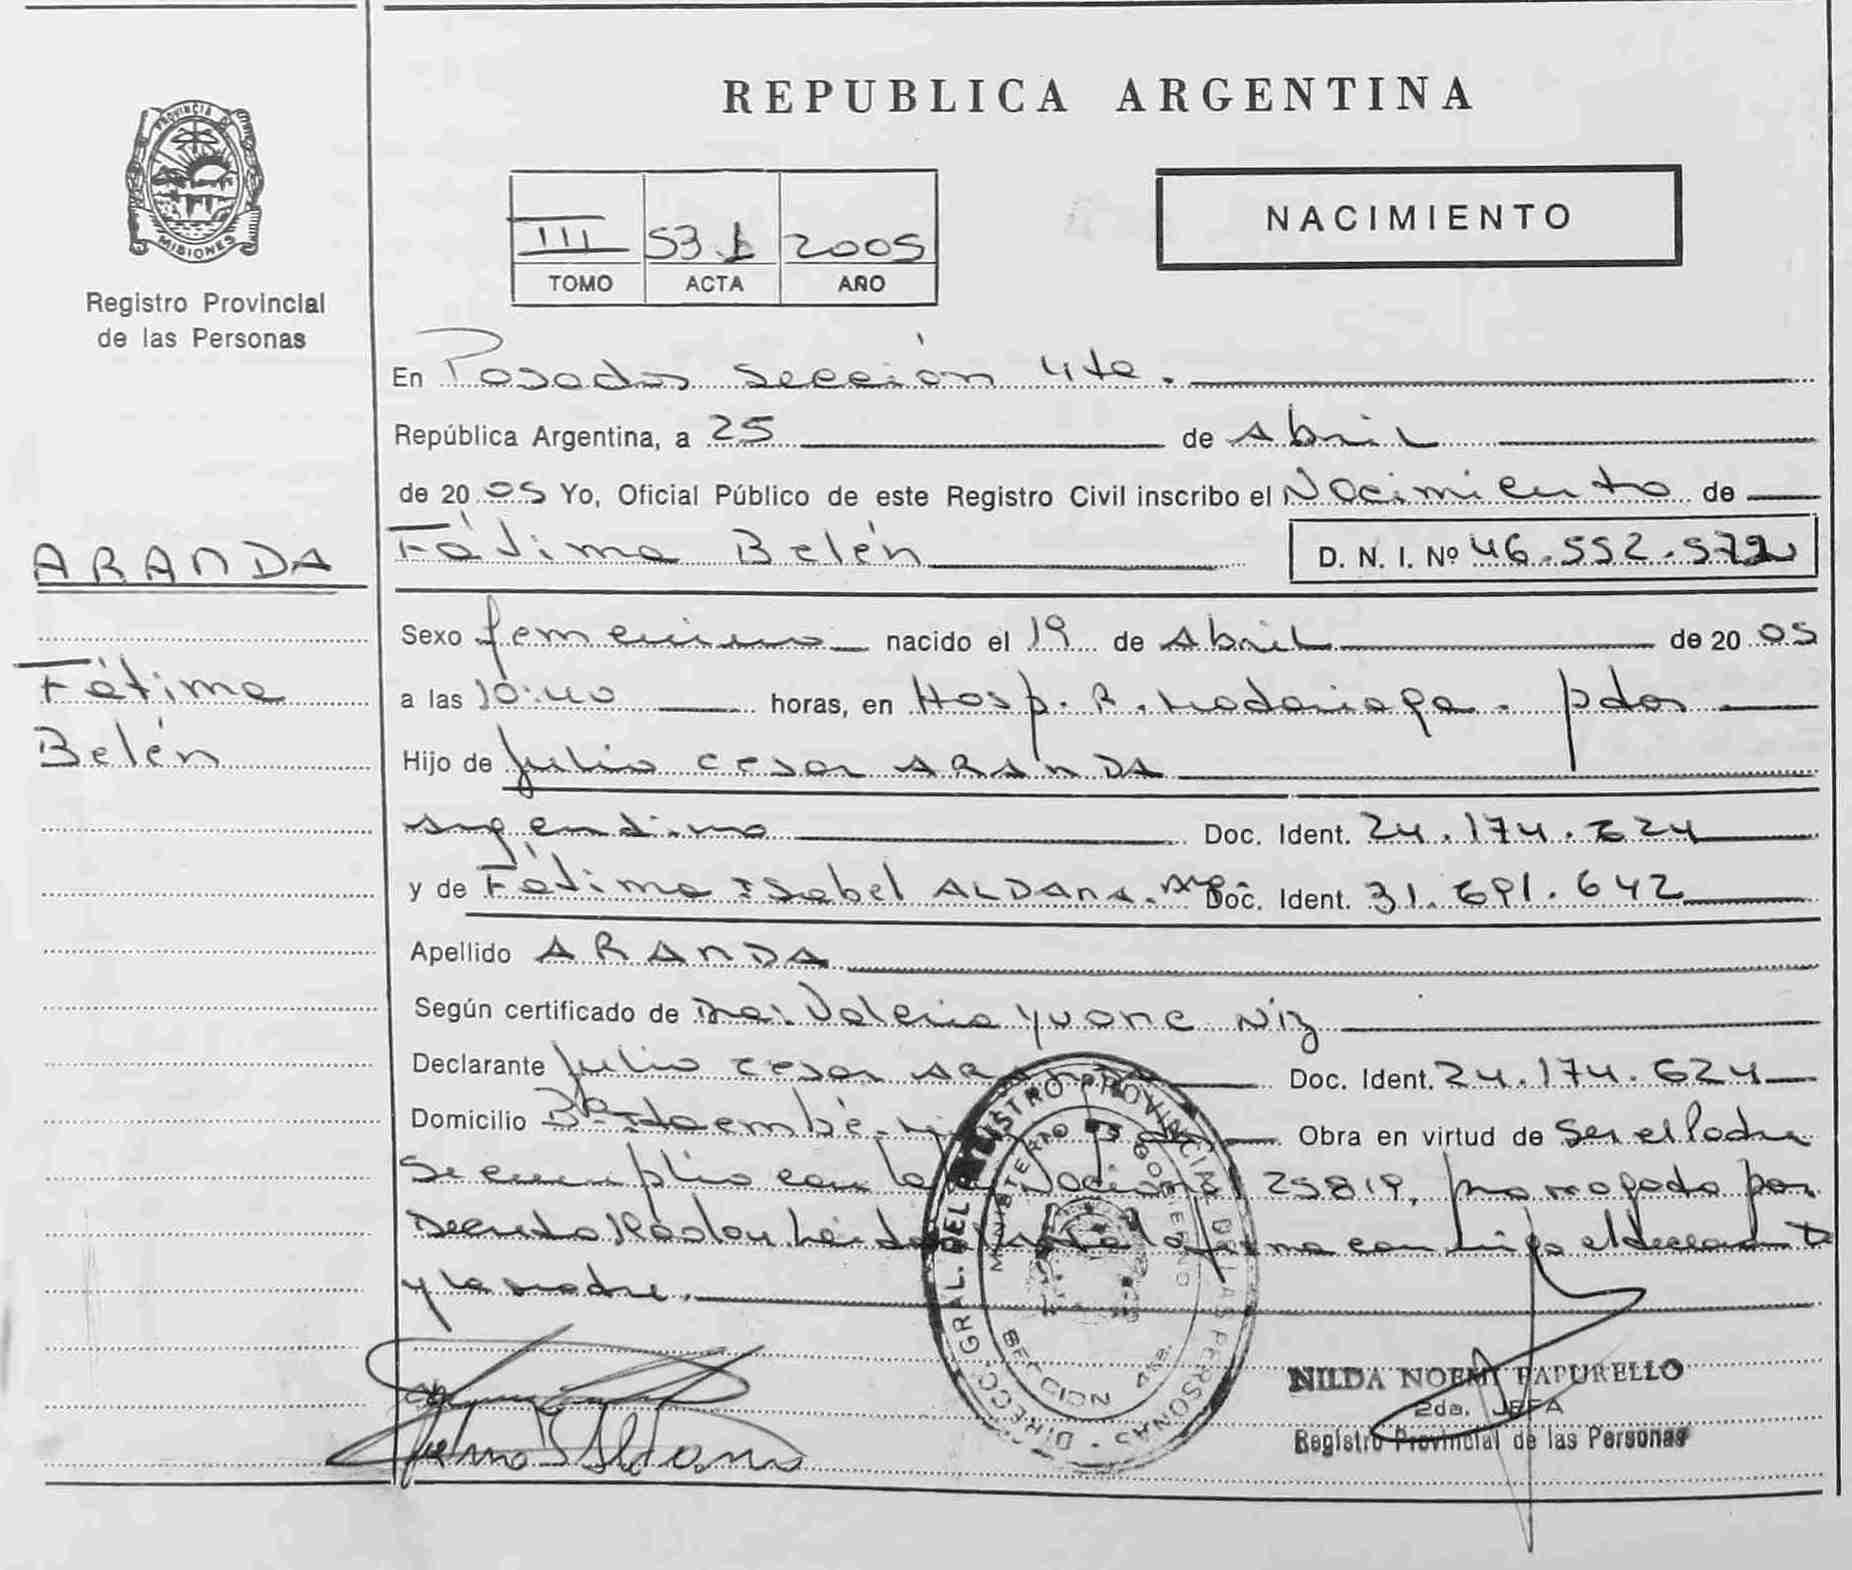 REPUBLICA ARGENTINA
PROVINCIA DE MISIONES
Registro Provincial
de las Personas
NACIMIENTO
III 531 2005
TOMO ACTA AÑO
En Posadas sección 4ta.
República Argentina, a 25 de Abril
de 2005 Yo, Oficial Público de este Registro Civil inscribo el Nacimiento de
Fátima Belén D. N. I. Nº 46.552.572
ARANDA
Fátima
Belén
Sexo femenino nacido el 19 de Abril de 2005
a las 10:40 horas, en Hosp. R. Madariaga. pdas
Hijo de Julio Cesar ARANDA
argentino Doc. Ident. 24.174.624
y de Fátima Isabel ALDANA. arg. Doc. Ident. 31.691.642
Apellido ARANDA
Según certificado de Dra. Valeria Yvone Niz
Declarante Julio Cesar ARANDA Doc. Ident. 24.174.624
Domicilio Bº Itaembé Obra en virtud de ser el Padre
se cumplio con la Nacional 25819, promogado por
Decreto Leída la firma conmigo el declarante
y la madre.
DIRECC. GRAL. DEL REGISTRO PROVINCIAL DE LAS PERSONAS
MINISTERIO DE GOBIERNO
SECCION 4ta.
NILDA NOEMI PAPURELLO
2da. JEFA
Registro Provincial de las Personas